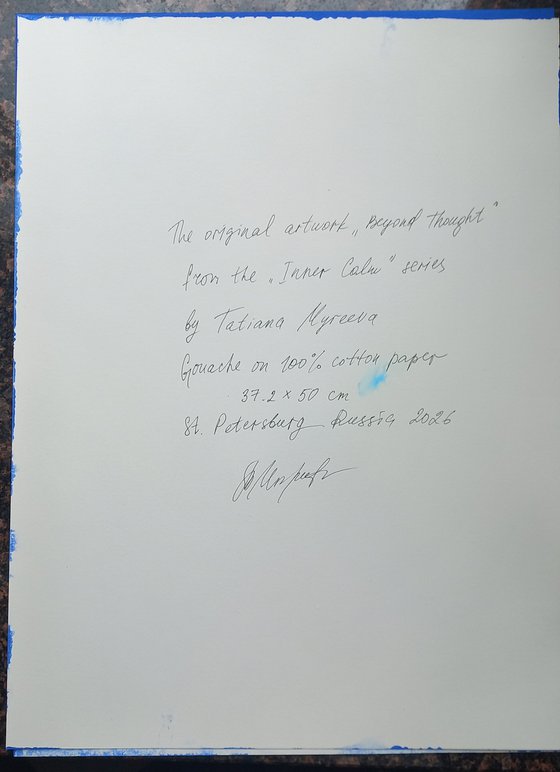 The original artwork „Beyond thought"
from the „Inner Calm" series
by Tatiana Myreeva
Gouache on 100% cotton paper
37.2 × 50 cm
St. Petersburg Russia 2026